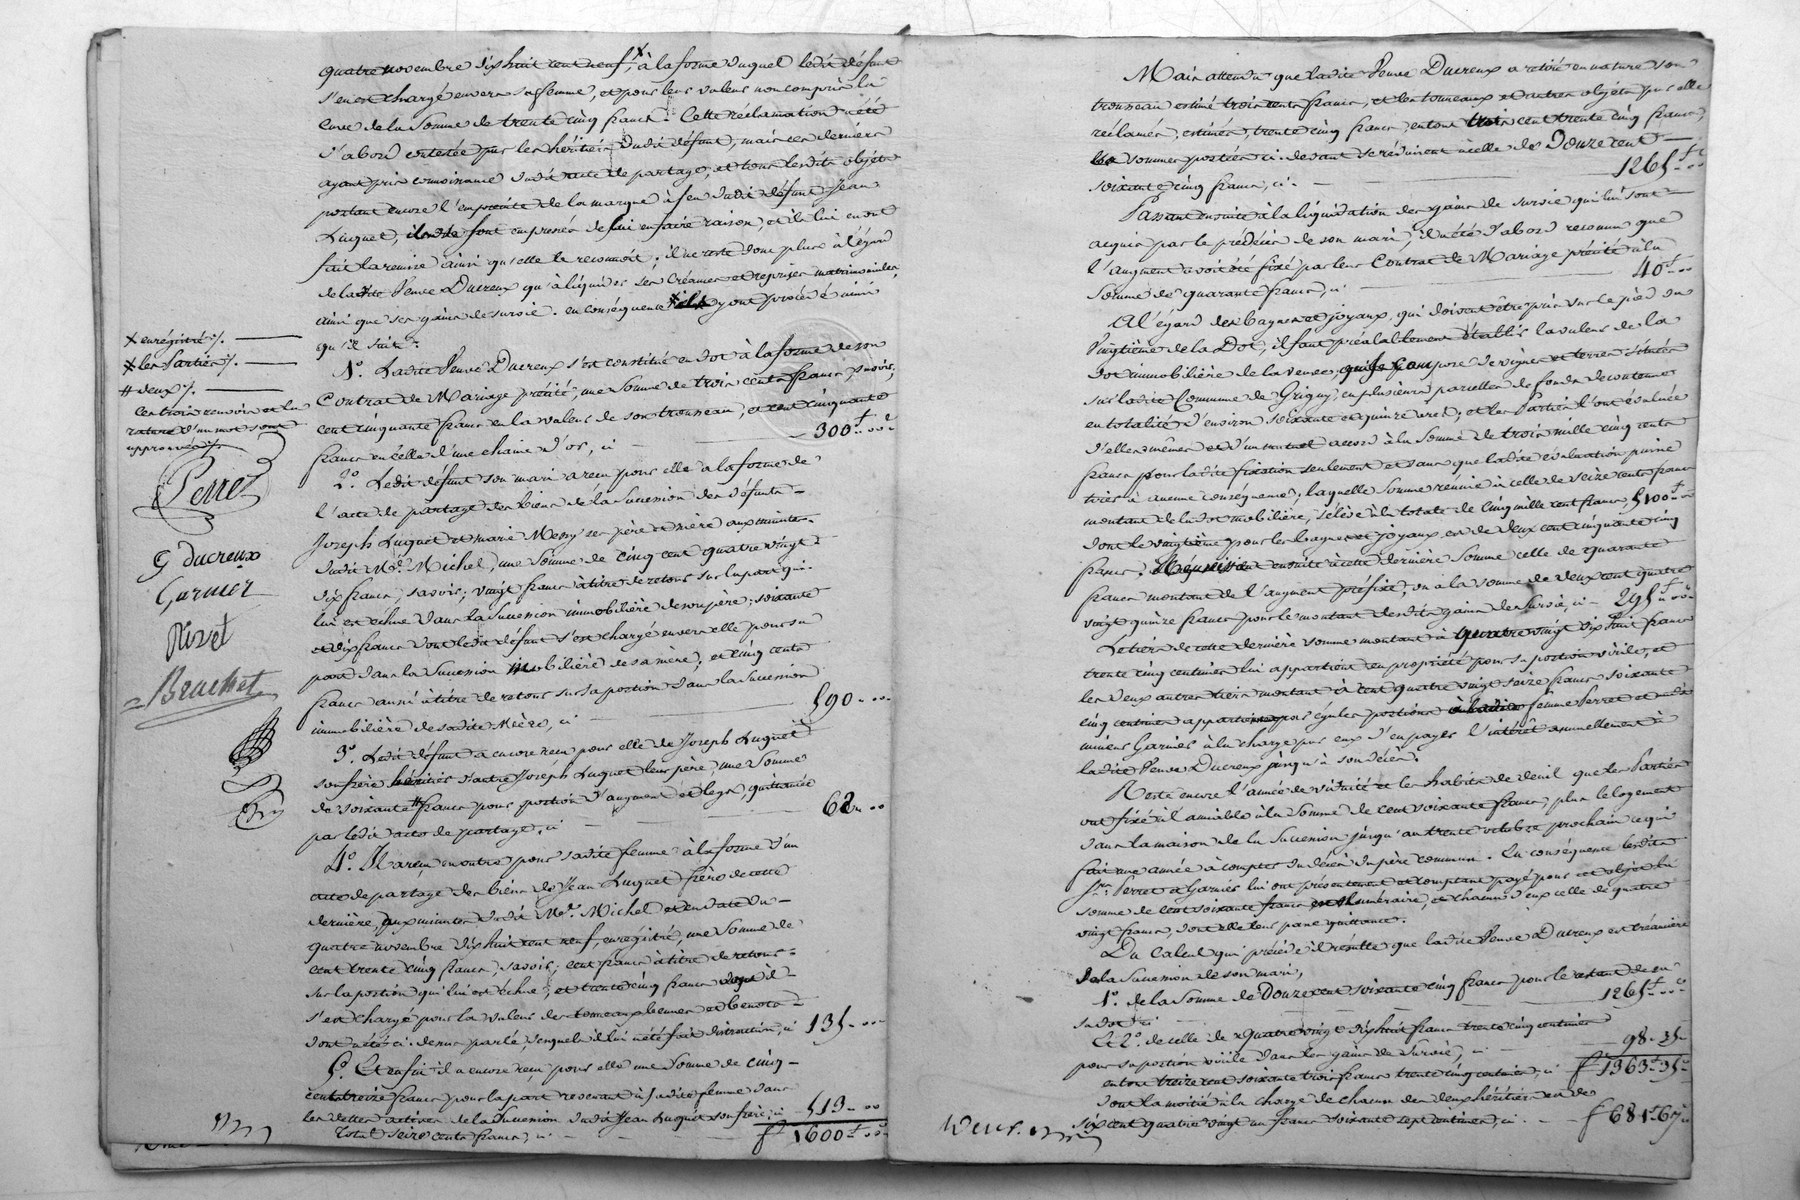 quatre novembre dix huit cent neuf,x à la forme duquel ledit défunt
s'en est chargé envers sa femme, et pour leur valeur non comprise la
cuve de la Somme de trente cinq francs. Cette réclamation a été
d'abord contestée par les héritiers dudit défunt, mais ces derniers
ayant pris connoissance dudit acte de partage, et tous lesdits objets
portant encore l'empreinte de la marque à feu dudit défunt Jean
Luquet, se sont empressés de lui en faire raison, et il lui en ont
fait la remise ainsi qu'elle le reconnoit; il ne reste donc plus à l'égard
de ladite Veuve Ducreux qu'à liquider ses Créances et reprises matrimoniales,
ainsi que ses gains de survie. en conséquence x y ont procédé ainsi
qu'il suit:
1° Ladite Veuve Ducreux s'est constitué en dot à la forme de son
Contrat de Mariage précité, une Somme de trois cents francs, savoir;
cent cinquante francs en la valeur de son trousseau, et cent cinquante
francs en celle d'une chaine d'or, ci 300 " "
2° Ledit défunt son mari a reçu pour elle à la forme de
l'acte de partage des biens de la Succession des défunts
Joseph Luquet et marie Messy ses père et mère aux minutes
dudit Me. Michel, une Somme de cinq cent quatre vingt
dix francs, savoir; vingt francs à titre de retour sur la part qui
lui est échue dans la Succession immobilière de son père; soixante
et dix francs dont ledit défunt s'est chargé envers elle pour sa
part dans la Succession mobilière de sa mère, et cinq cents
francs aussi à titre de retour sur sa portion dans la Succession
immobilière de sadite Mère, ci 590 " "
3° Ledit défunt a encore reçu pour elle de Joseph Luquet
son frère héritier d'autre Joseph Luquet leur père, une Somme
de soixante # francs pour portion d'augment et legs, quittancée
par ledit acte de partage, ci 62 " "
4° Il a reçu en outre pour sadite femme à la forme d'un
acte de partage des biens de Jean Luquet frère de cette
dernière, aux minutes dudit Me. Michel et en date du
quatre novembre dix huit cent neuf, enregistré, une Somme de
cent trente cinq francs, savoir; cent francs à titre de retour
sur la portion qui lui est échue, et trente cinq francs dont il
s'est chargé pour la valeur des tonneaux bennes et benots
dont a été ci-dessus parlé, desquels il lui a été fait distraction, ci 135 " "
5° Et enfin il a encore reçu pour elle une Somme de cinq
cent treize francs pour la part revenant à sadite femme dans
les dettes actives de la Succession dudit Jean Luquet son frère; ci 513 " "
Total seize cents francs, ci f 1600 " "
x enregistré %.
x les Parties %.
# deux %.
Ces trois renvois et la
rature d'un mot sont
approuvés %.
Perret
G Ducreux
Garnier
Rivet
Brachet
Mais attendu que ladite Veuve Ducreux a retiré en nature son
trousseau estimé trois cents francs, et les tonneaux et autres objets par elle
réclamés, estimés trente cinq francs, en tout trois cent trente cinq francs,
les sommes portées ci-devant se réduisent à celle de Douze cent
soixante cinq francs, ci 1265 " "
Passant ensuite à la liquidation des gains de survie qui lui sont
acquis par le prédécès de son mari, il a été d'abord reconnu que
l'augment avoit été fixé par leur Contrat de Mariage précité à la
Somme de quarante francs, ci 40 " "
A l'égard des bagues et joyaux, qui doivent être pris sur le pied du
Vingtième de la Dot, il faut préalablement établir la valeur de la
dot immobilière de la veuve, qui se compose de vignes et terres situées
sur ladite Commune de Grigny, en plusieurs parcelles de fonds de contenue
en totalité d'environ soixante et quinze ares; et les Parties l'ont évaluée
d'elles mêmes et d'un mutuel accord à la Somme de trois mille cinq cents
francs pour ladite fixation seulement et sans que ladite évaluation puisse
tirer à aucune conséquence; laquelle Somme réunie à celle de seize cents francs
montant de la dot mobilière, s'élève à la totale de Cinq mille cent francs, 5100 " "
dont le vingtième pour les bagues et joyaux est de deux cent cinquante cinq
francs. Réunissant ensuite à cette dernière Somme celle de quarante
francs montant de l'augment préfixé, on a la somme de deux cent quatre
vingt quinze francs pour le montant desdits gains de Survie, ci 295 " "
Le tiers de cette dernière somme montant à quatre vingt dix huit francs
trente cinq centimes lui appartient en propriété pour sa portion virile, et
les deux autres tiers montant à cent quatre vingt seize francs soixante
cinq centimes appartiennent par égales portions à ladite femme Perret et audit
mineur Garnier à la charge par eux d'en payer l'intérêt annuellement à
ladite Veuve Ducreux jusqu'à son décès.
Reste encore l'année de viduité et les habits de deuil que les Parties
ont fixé à l'amiable à la Somme de cent soixante francs, plus le logement
dans la maison de la Succession jusqu'au trente octobre prochain ce qui
fait une année à compter du décès du père commun. En conséquence lesdits
Srs. Perret et Garnier lui ont présentement et comptant payé pour cet objet la
somme de cent soixante francs en Numéraire, et chacun d'eux celle de quatre
vingt francs, dont elle leur passe quittance.
Du Calcul qui précède il résulte que ladite Veuve Ducreux est créancière
de la Succession de son mari,
1° de la Somme de Douze cent soixante cinq francs pour le restant de sa
dot ci 1265 " "
Et 2° de celle de Quatre vingt dix huit francs trente cinq centimes
pour sa portion virile dans les gains de Survie, ci 98 " 35
en tout treize cent soixante trois francs trente cinq centimes, ci f 1363 " 35
dont la moitié à la charge de chacun des deux héritiers est de
six cent quatre vingt un francs soixante sept centimes, ci f 681 " 67